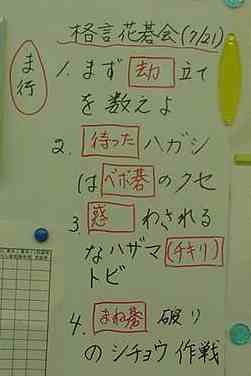 格言花碁会(7/21)
ま行
1. まず 劫 立て
を数えよ
2. 待った ハガシ
はヘボ碁のクセ
3. 惑 わされる
なハザマ(チキリ)
トビ
4. まね碁 破り
のシチョウ作戦